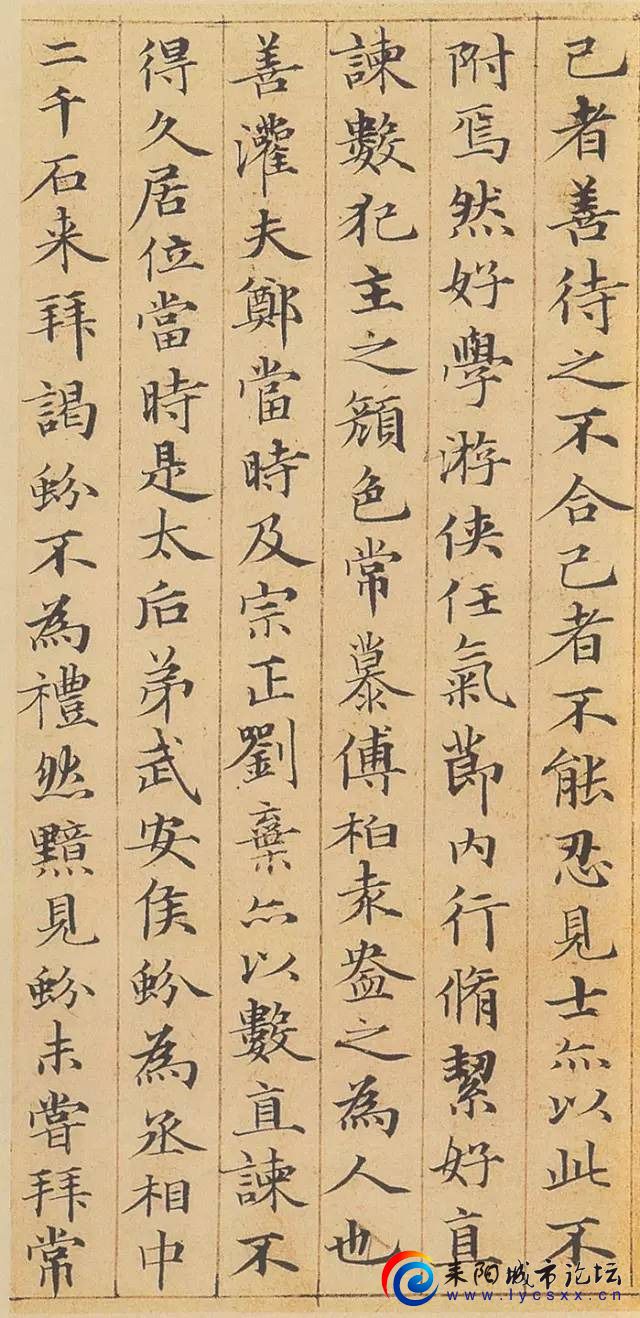 己者善待之不合己者不能忍見士亦以此不
附焉然好學游俠任氣節內行脩潔好直
諫數犯主之顏色常慕傅柏袁盎之為人也
善灌夫鄭當時及宗正劉棄亦以數直諫不
得久居位當時是太后弟武安侯蚡為丞相中
二千石来拜謁蚡不為禮然黯見蚡未嘗拜常
耒阳城市论坛
www.lycsxx.cn